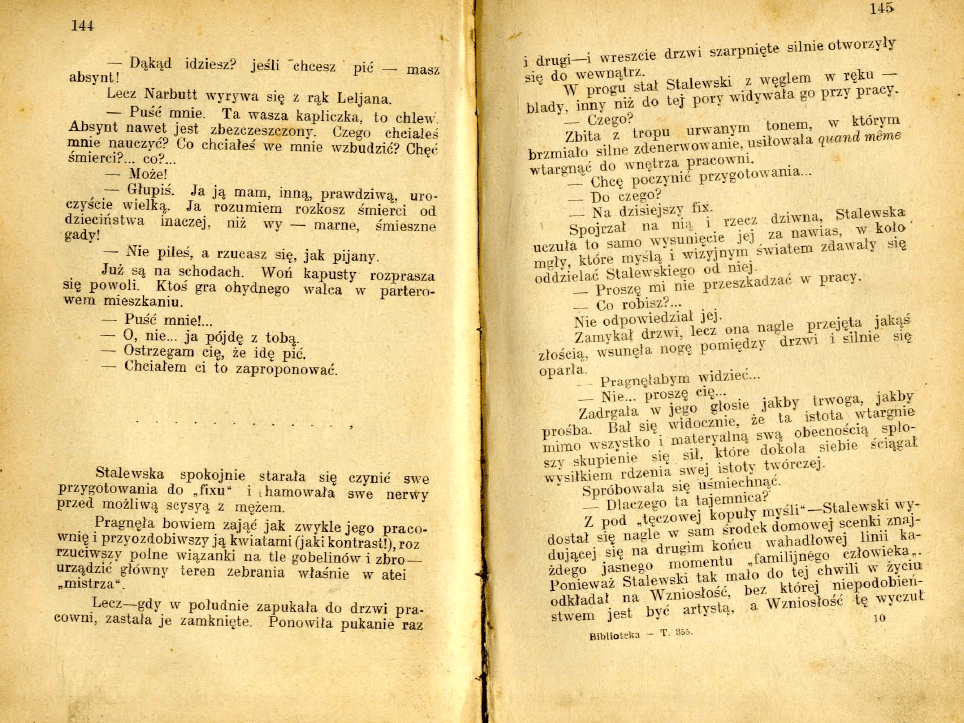 144
— Dąkąd idziesz? jeśli chcesz pić — masz
absynt!
Lecz Narbutt wyrywa się z rąk Leljana.
— Puść mnie. Ta wasza kapliczka, to chlew.
Absynt nawet jest zbezczeszczony. Czego chciałeś
mnie nauczyć? Co chciałeś we mnie wzbudzić? Chęć
śmierci?... co?...
— Może!
— Głupiś. Ja ją mam, inną, prawdziwą, uro-
czyście wielką. Ja rozumiem rozkosz śmierci od
dzieciństwa inaczej, niż wy — marne, śmieszne
gady!
— Nie piłeś, a rzucasz się, jak pijany.
Już są na schodach. Woń kapusty rozprasza
się powoli. Ktoś gra ohydnego walca w partero-
wem mieszkaniu.
— Puść mnie!...
— O, nie... ja pójdę z tobą.
— Ostrzegam cię, że idę pić.
— Chciałem ci to zaproponować.
. . . . . . . . . . . . .
Stalewska spokojnie starała się czynić swe
przygotowania do „fixu“ i hamowała swe nerwy
przed możliwą scysyą z mężem.
Pragnęła bowiem zająć jak zwykle jego praco-
wnię i przyozdobiwszy ją kwiatami (jaki kontrast!), roz
rzuciwszy polne wiązanki na tle gobelinów i zbro—
urządzić główny teren zebrania właśnie w atei
„mistrza“.
Lecz—gdy w południe zapukała do drzwi pra-
cowni, zastała je zamknięte. Ponowiła pukanie raz
145
i drugi—i wreszcie drzwi szarpnięte silnie otworzyły
się do wewnątrz.
W progu stał Stalewski z węglem w ręku —
blady, inny niż do tej pory widywała go przy pracy.
— Czego?
Zbita z tropu urwanym tonem, w którym
brzmiało silne zdenerwowanie, usiłowała quand même
wtargnąć do wnętrza pracowni.
— Chcę poczynić przygotowania...
— Do czego?
— Na dzisiejszy fix.
Spojrzał na nią i rzecz dziwna, Stalewska
uczuła to samo wysunięcie jej za nawias, w koło
mgły, które myślą i wizyjnym światem zdawały się
oddzielać Stalewskiego od niej.
— Proszę mi nie przeszkadzać w pracy.
— Co robisz?...
Nie odpowiedział jej.
Zamykał drzwi, lecz ona nagle przejęta jakąś
złością, wsunęła nogę pomiędzy drzwi i silnie się
oparła.
— Pragnęłabym widzieć...
— Nie... proszę cię...
Zadrgała w jego głosie jakby trwoga, jakby
prośba. Bał się widocznie, że ta istota wtargnie
mimo wszystko i materyalną swą obecnością spło-
szy skupienie się sił, które dokoła siebie ściągał
wysiłkiem rdzenia swej istoty twórczej.
Spróbowała się uśmiechnąć.
— Dlaczego ta tajemnica?
Z pod „tęczowej kopuły myśli“—Stalewski wy-
dostał się nagle w sam środek domowej scenki znaj-
dującej się na drugim końcu wahadłowej linii ka-
żdego jasnego momentu „familijnego człowieka„.
Ponieważ Stalewski tak mało do tej chwili w życiu
odkładał na Wzniosłość, bez której niepodobień-
stwem jest być artystą, a Wzniosłość tę wyczuł
Biblioteka — T. 355.
10